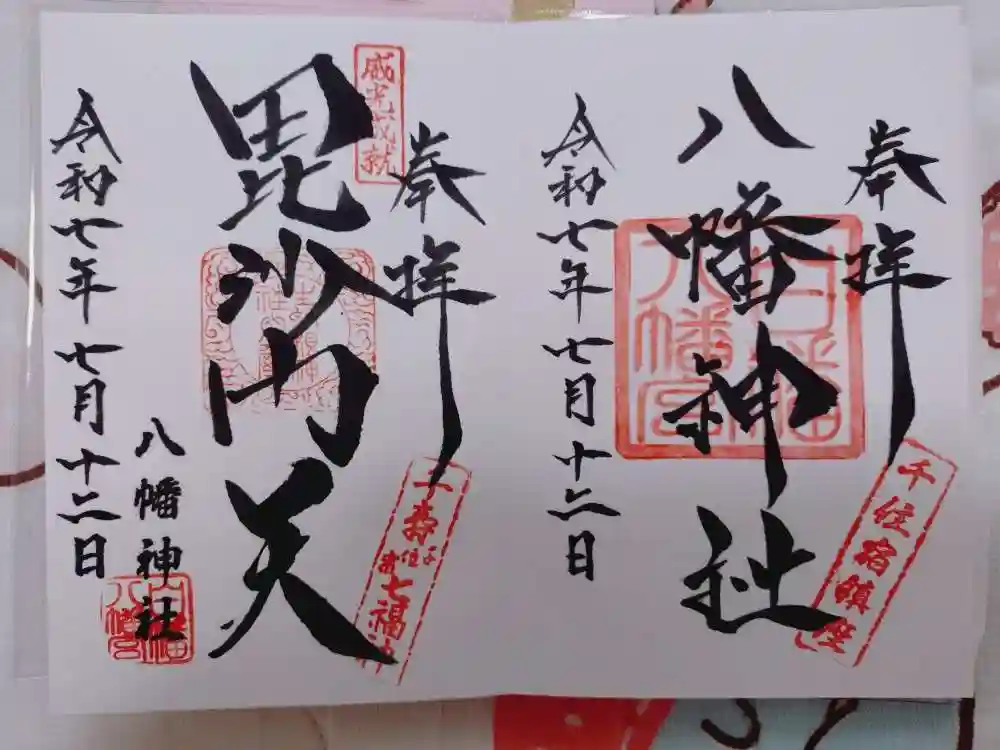 奉拝
八幡神社
千住宿鎮座
令和七年七月十二日
奉拝
威光成就
毘沙門天
千寿
七福神
八幡神社
令和七年七月十二日